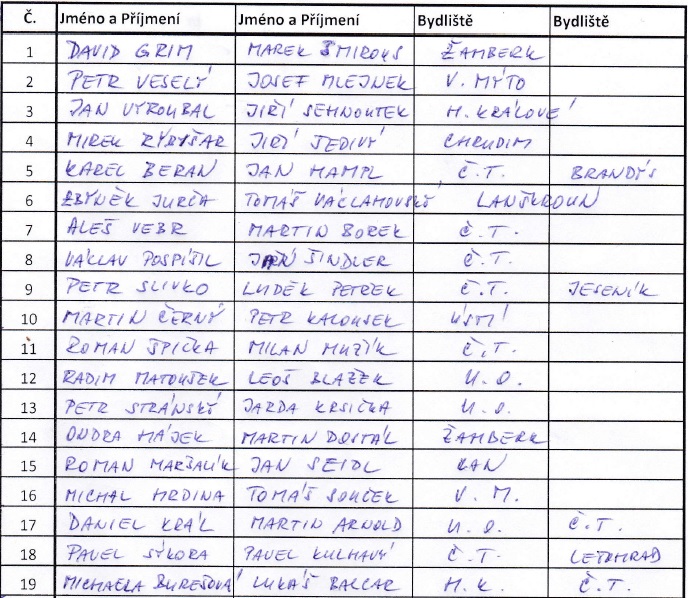 Č. Jméno a Příjmení Jméno a Příjmení Bydliště Bydliště
1 DAVID GRIM MAREK ŠMIROUS ŽAMBERK
2 PETR VESELÝ JOSEF MLEJNEK V. MÝTO
3 JAN VYROUBAL JIŘÍ SEHNOUTEK H. KRÁLOVÉ
4 MIREK JIŘÍ ŠEDIVÝ CHRUDIM
5 KAREL BERAN JAN HAMPL Č.T. BRANDÝS
6 ZBYNĚK JURČA TOMÁŠ VÁCLAHOVSKÝ LANŠKROUN
7 ALEŠ VEBR MARTIN BOREK Č.T.
8 VÁCLAV POSPÍŠIL JAN ŠINDLER Č.T.
9 PETR SLIVKO LUDĚK PETREK Č.T. JESENÍK
10 MARTIN ČERNÝ PETR KALOUSEK ÚSTÍ
11 ROMAN ŠPIČKA MILAN MUŽÍK Č.T.
12 RADIM MATOUŠEK LEOŠ BLAŽEK U.O.
13 PETR STRÁNSKÝ JARDA KRSIČKA U.O.
14 ONDRA HÁJEK MARTIN DOSTÁL ŽAMBERK
15 ROMAN MARŠALÍK JAN SEIDL LAN
16 MICHAL HRDINA TOMÁŠ SOUČEK V. M.
17 DANIEL KRÁL MARTIN ARNOLD U.O. Č.T.
18 PAVEL SÝKORA PAVEL KULHAVÝ Č.T. LETOHRAD
19 MICHAELA BUREŠOVÁ LUKÁŠ BALCAR H.K. Č.T.